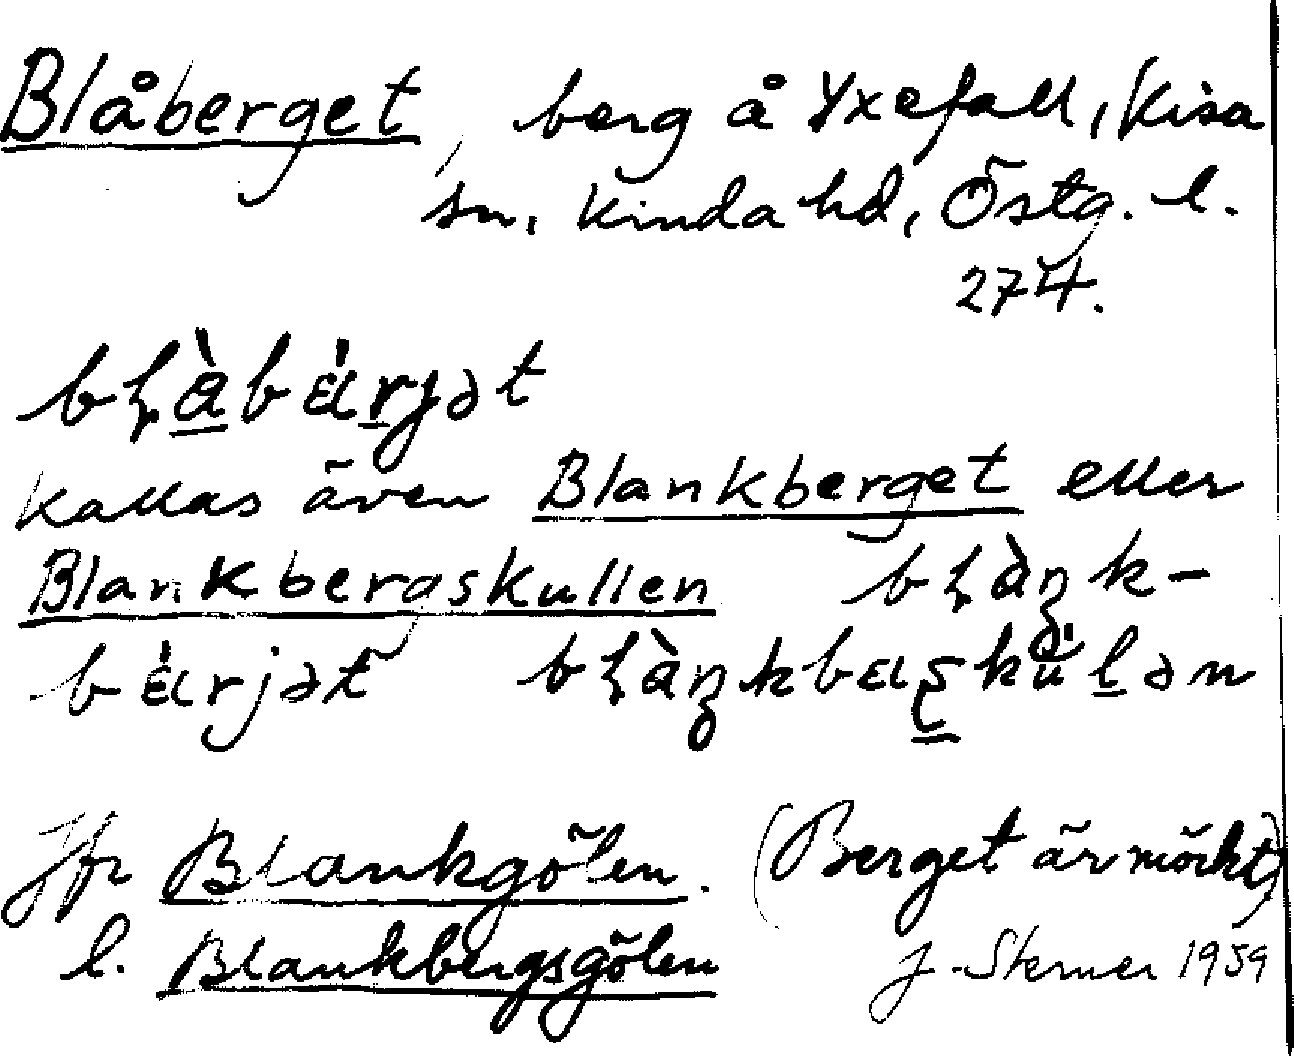 Blåberget, berg å Yxefall, Kisa
sn, Kinda hd, Östg. l.
274.
kallas även Blankberget eller
Blankbergskullen
Jfr Blankgölen. (Berget är mörkt)
l. Blankbergsgölen J. Sterner 1959